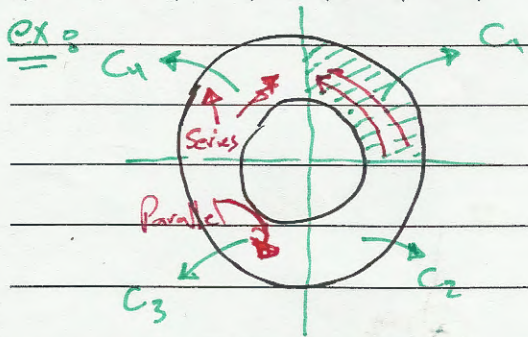 ex:
C4
C1
Series
Parallel
C3
C2